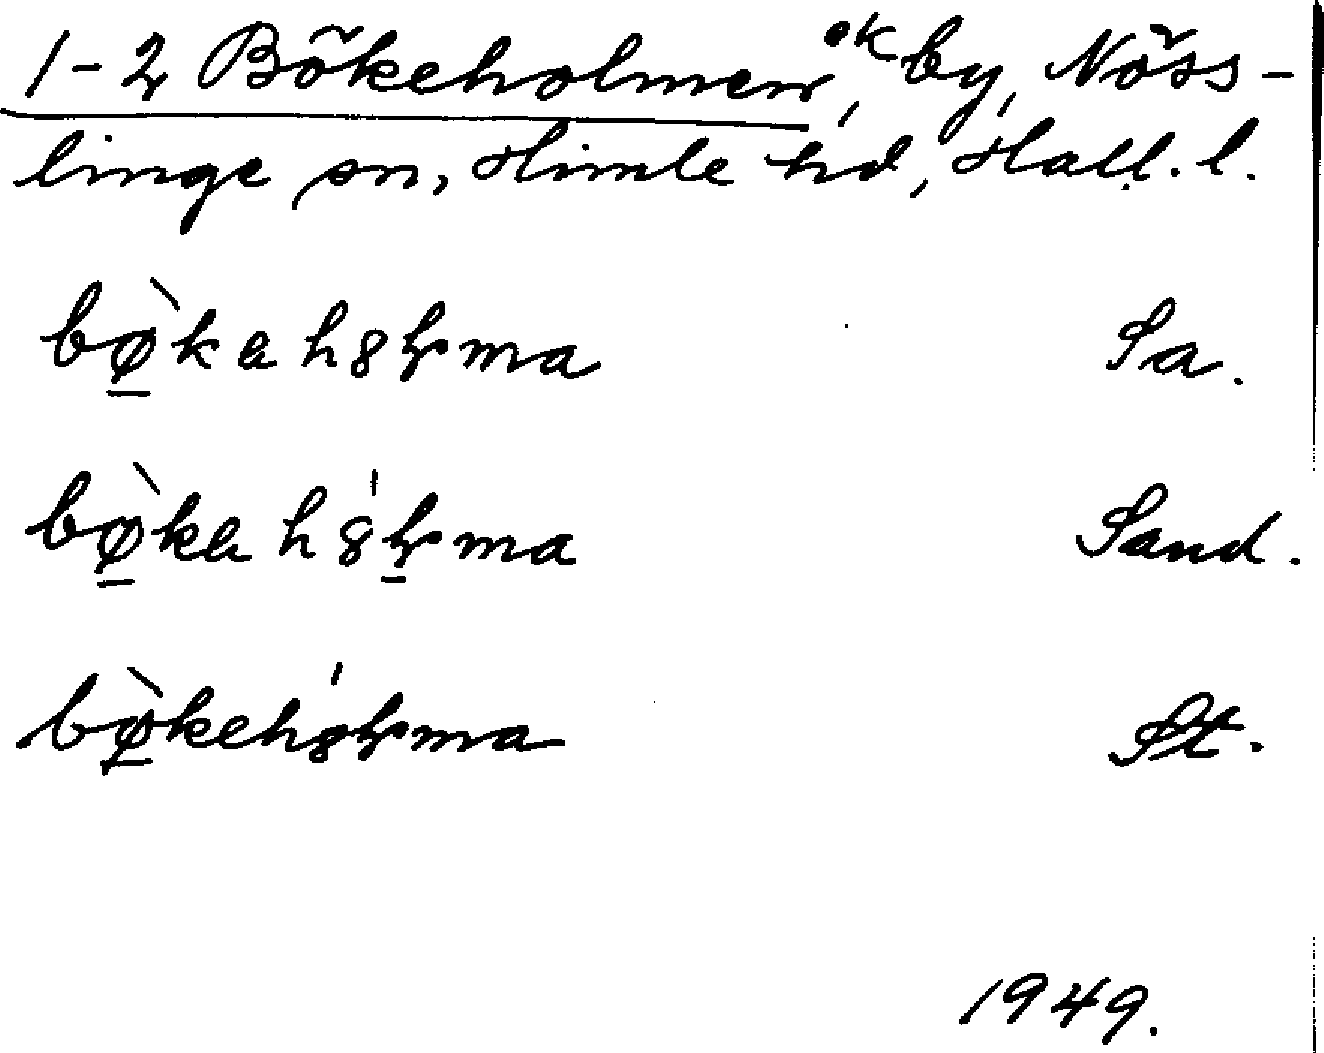 1-2 Bökeholmen, ek by, Nöss-
linge sn, Himle hd, Hall. l.
bø̱̀kahȣɫma Sa.
bø̱̀kahȣ́ɫ̱ma Sand.
bø̱̀kehȣ́ɫma St.
1949.